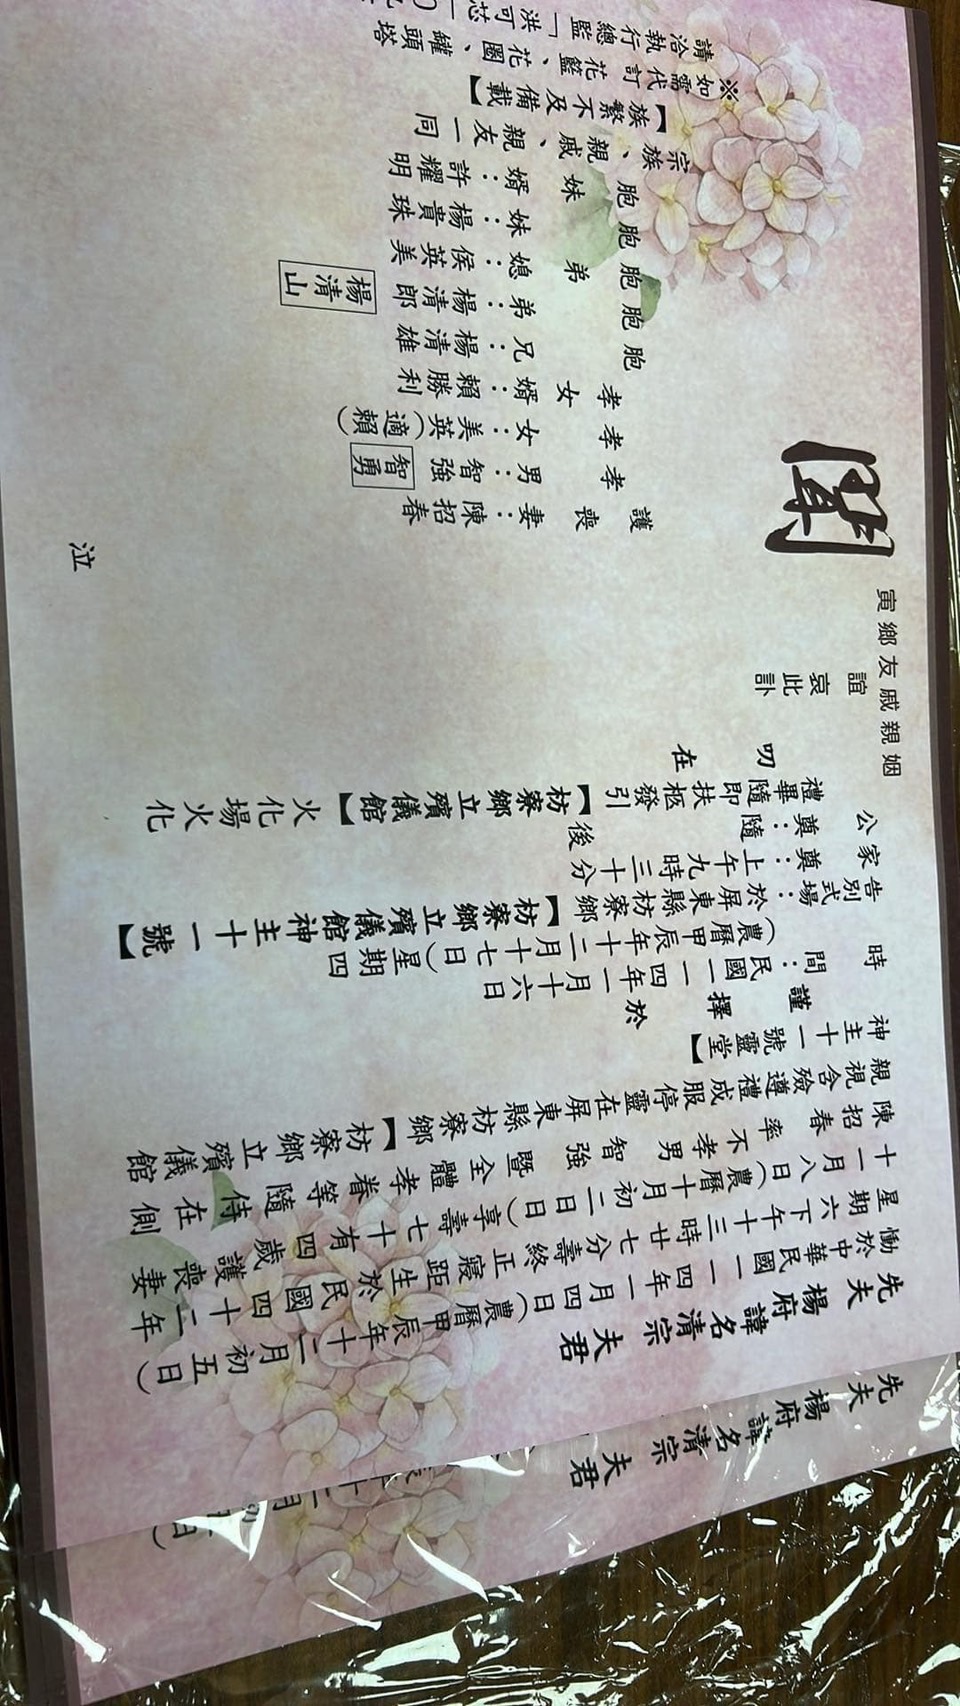 先夫楊府諱名清宗夫君
慟於中華民國一一四年一月四日(農曆甲辰年十二月初五日)
星期六下午十三時廿七分壽終正寢距生於民國四十二年
十一月八日(農曆十月初二日)享壽七十有四歲護喪妻
陳招春率不孝男智強暨全體孝眷等隨侍在側
親視含殮遵禮成服停靈在屏東縣枋寮鄉【枋寮鄉立殯儀館
神主十一號靈堂】
謹擇於
時間：民國一一四年一月十六日(星期四)
(農曆甲辰年十二月十七日)
告別式場：於屏東縣枋寮鄉【枋寮鄉立殯儀館神主十一號】
家奠：上午九時三十分
公奠：隨後
禮畢隨即扶柩發引【枋寮鄉立殯儀館】火化場火化
叨在
姻親戚友鄉寅誼哀此訃
聞
護喪妻：陳招春
孝男：智強 智勇
孝女：美英(適賴)
孝女婿：賴勝利
胞兄：楊清雄
胞弟：楊清郎 楊清山
胞弟媳：侯英美
胞妹：楊貴珠
胞妹婿：許耀明
宗族、親戚、親友一同
泣
【族繁不及備載】
※如需代訂花籃、花圈、罐頭塔
請洽執行總監「洪可芯
先夫楊府諱名清宗夫君